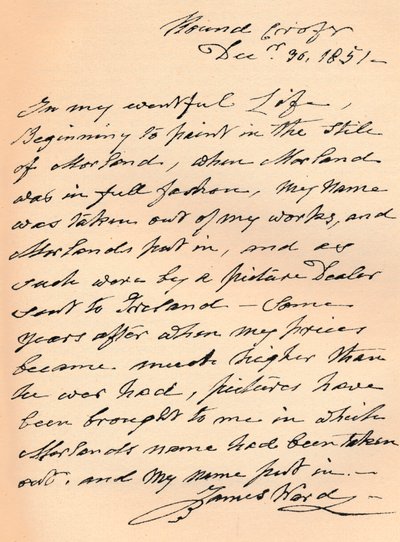 Round Croft
Decr. 30. 1851-
In my eventful Life,
Beginning to paint in the Stile
of Morland, when Morland
was in full fashon, My Name
was taken out of my works, and
Morlands put in, and as
such were by a picture Dealer
sent to Ireland – Some
years after when my prices
became much higher than
he ever had, pictures have
been brought to me in which
Morlands name had been taken
out, and My name put in. –
James Ward –